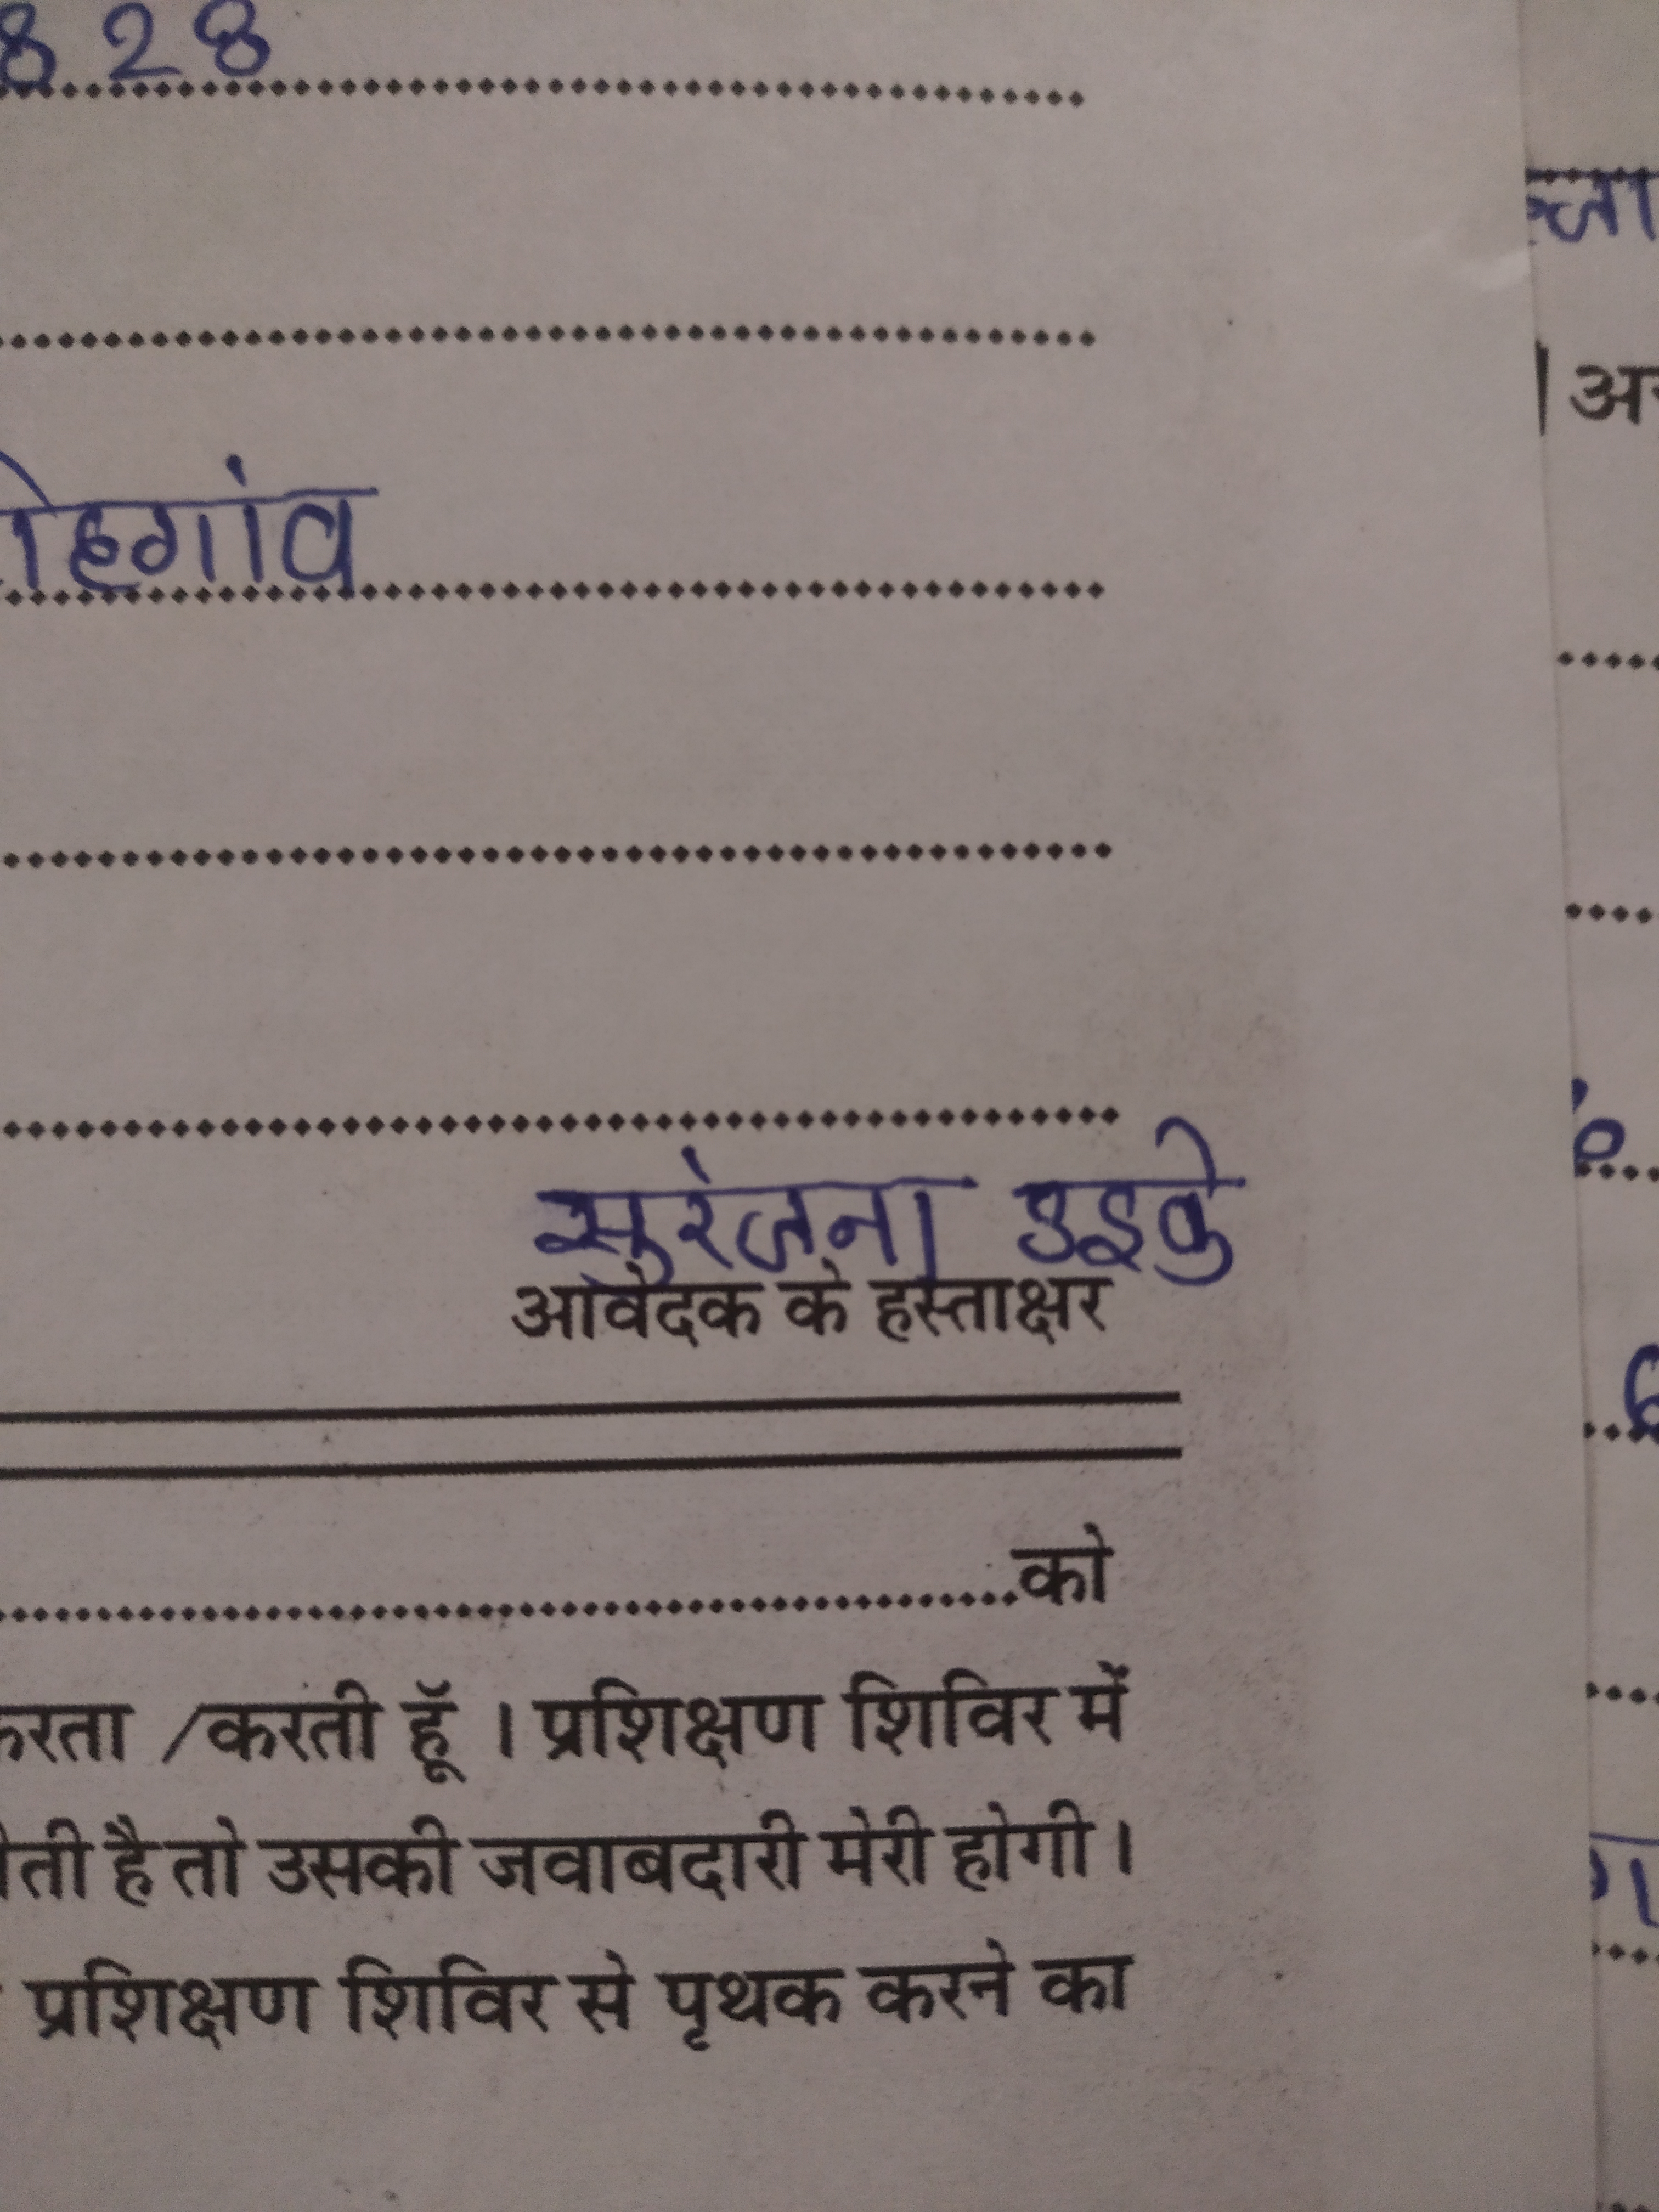 828
हगांव
सुरंजना उइके
आवेदक के हस्ताक्षर
को
करता /करती हूॅ । प्रशिक्षण शिविर में
है तो उसकी जवाबदारी मेरी होगी।
प्रशिक्षण शिविर से पृथक करने का